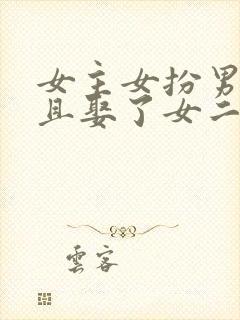 女主女扮男
且娶了女二
雲客